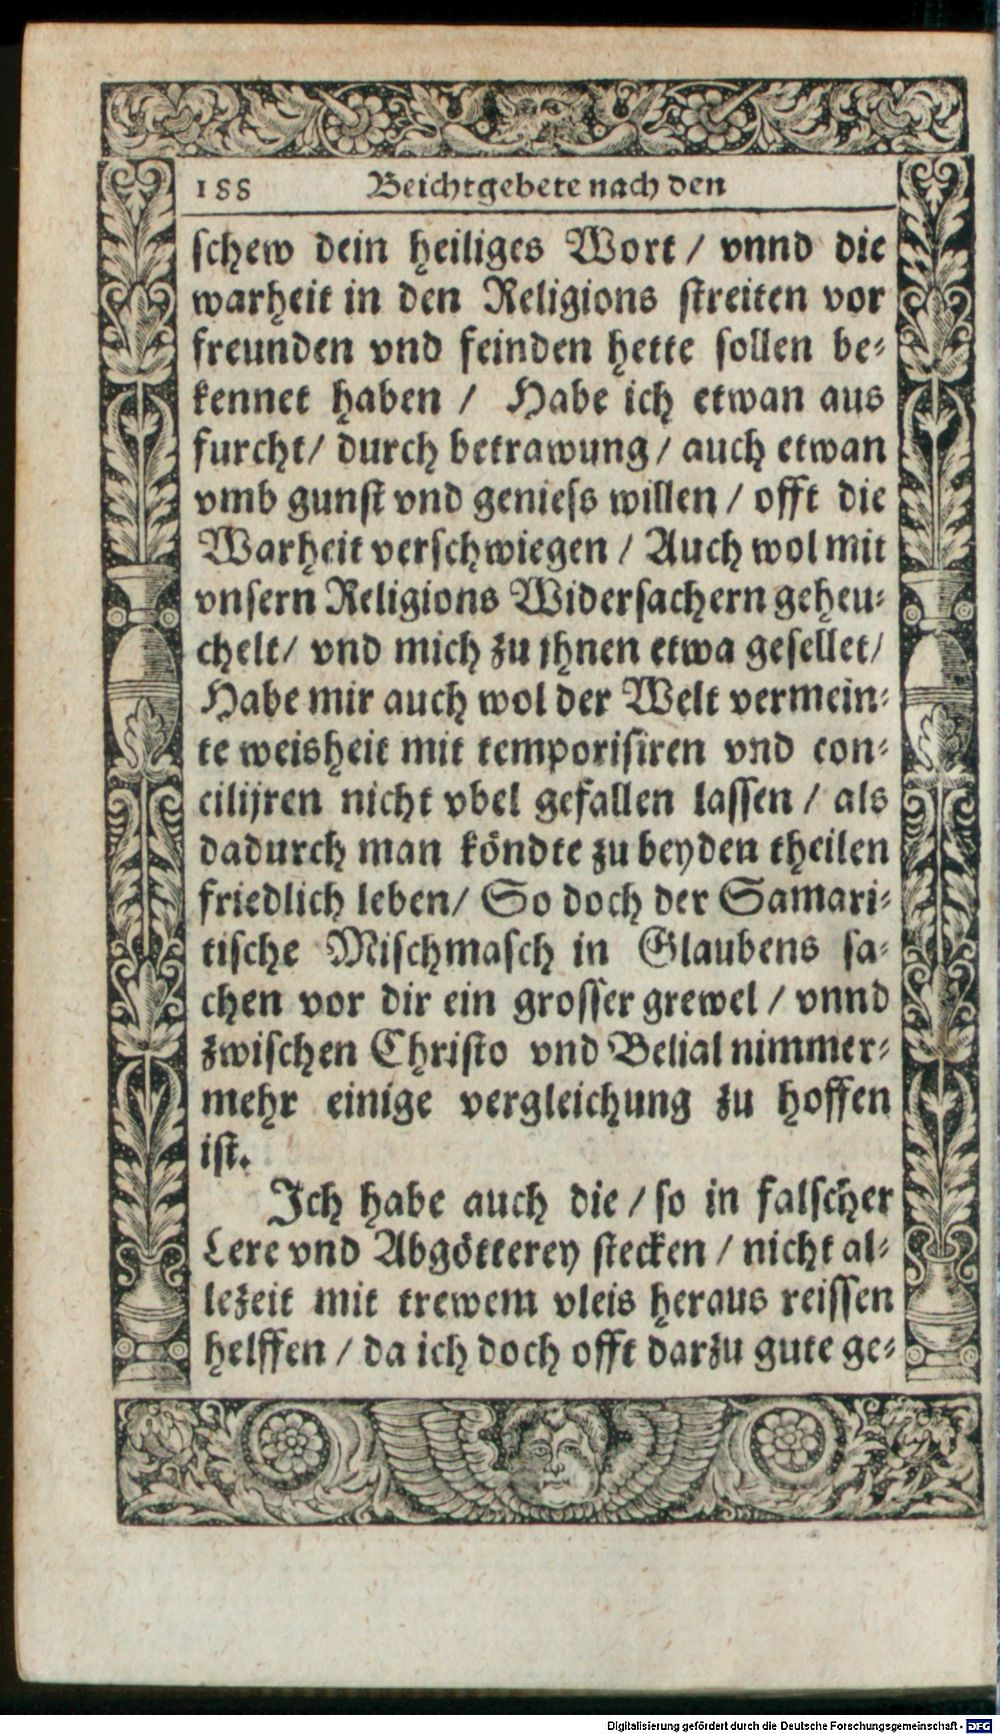 188 Beichtgebete nach den
schew dein heiliges Wort / vnnd die
warheit in den Religions streiten vor
freunden vnd feinden hette sollen be-
kennet haben / Habe ich etwan aus
furcht / durch betrawung / auch etwan
vmb gunst vnd geniess willen / offt die
Warheit verschwiegen / Auch wol mit
vnsern Religions Widersachern geheu-
chelt / vnd mich zu ihnen etwa gesellet /
Habe mir auch wol der Welt vermein-
te weisheit mit temporisiren vnd con-
cilijren nicht vbel gefallen lassen / als
dadurch man köndte zu beyden theilen
friedlich leben / So doch der Samari-
tische Mischmasch in Glaubens sa-
chen vor dir ein grosser grewel / vnnd
zwischen Christo vnd Belial nimmer-
mehr einige vergleichung zu hoffen
ist.
Ich habe auch die / so in falscher
Lere vnd Abgötterey stecken / nicht al-
lezeit mit trewem vleis heraus reissen
helffen / da ich doch offt darzu gute ge-
Digitalisierung gefördert durch die Deutsche Forschungsgemeinschaft - DFG